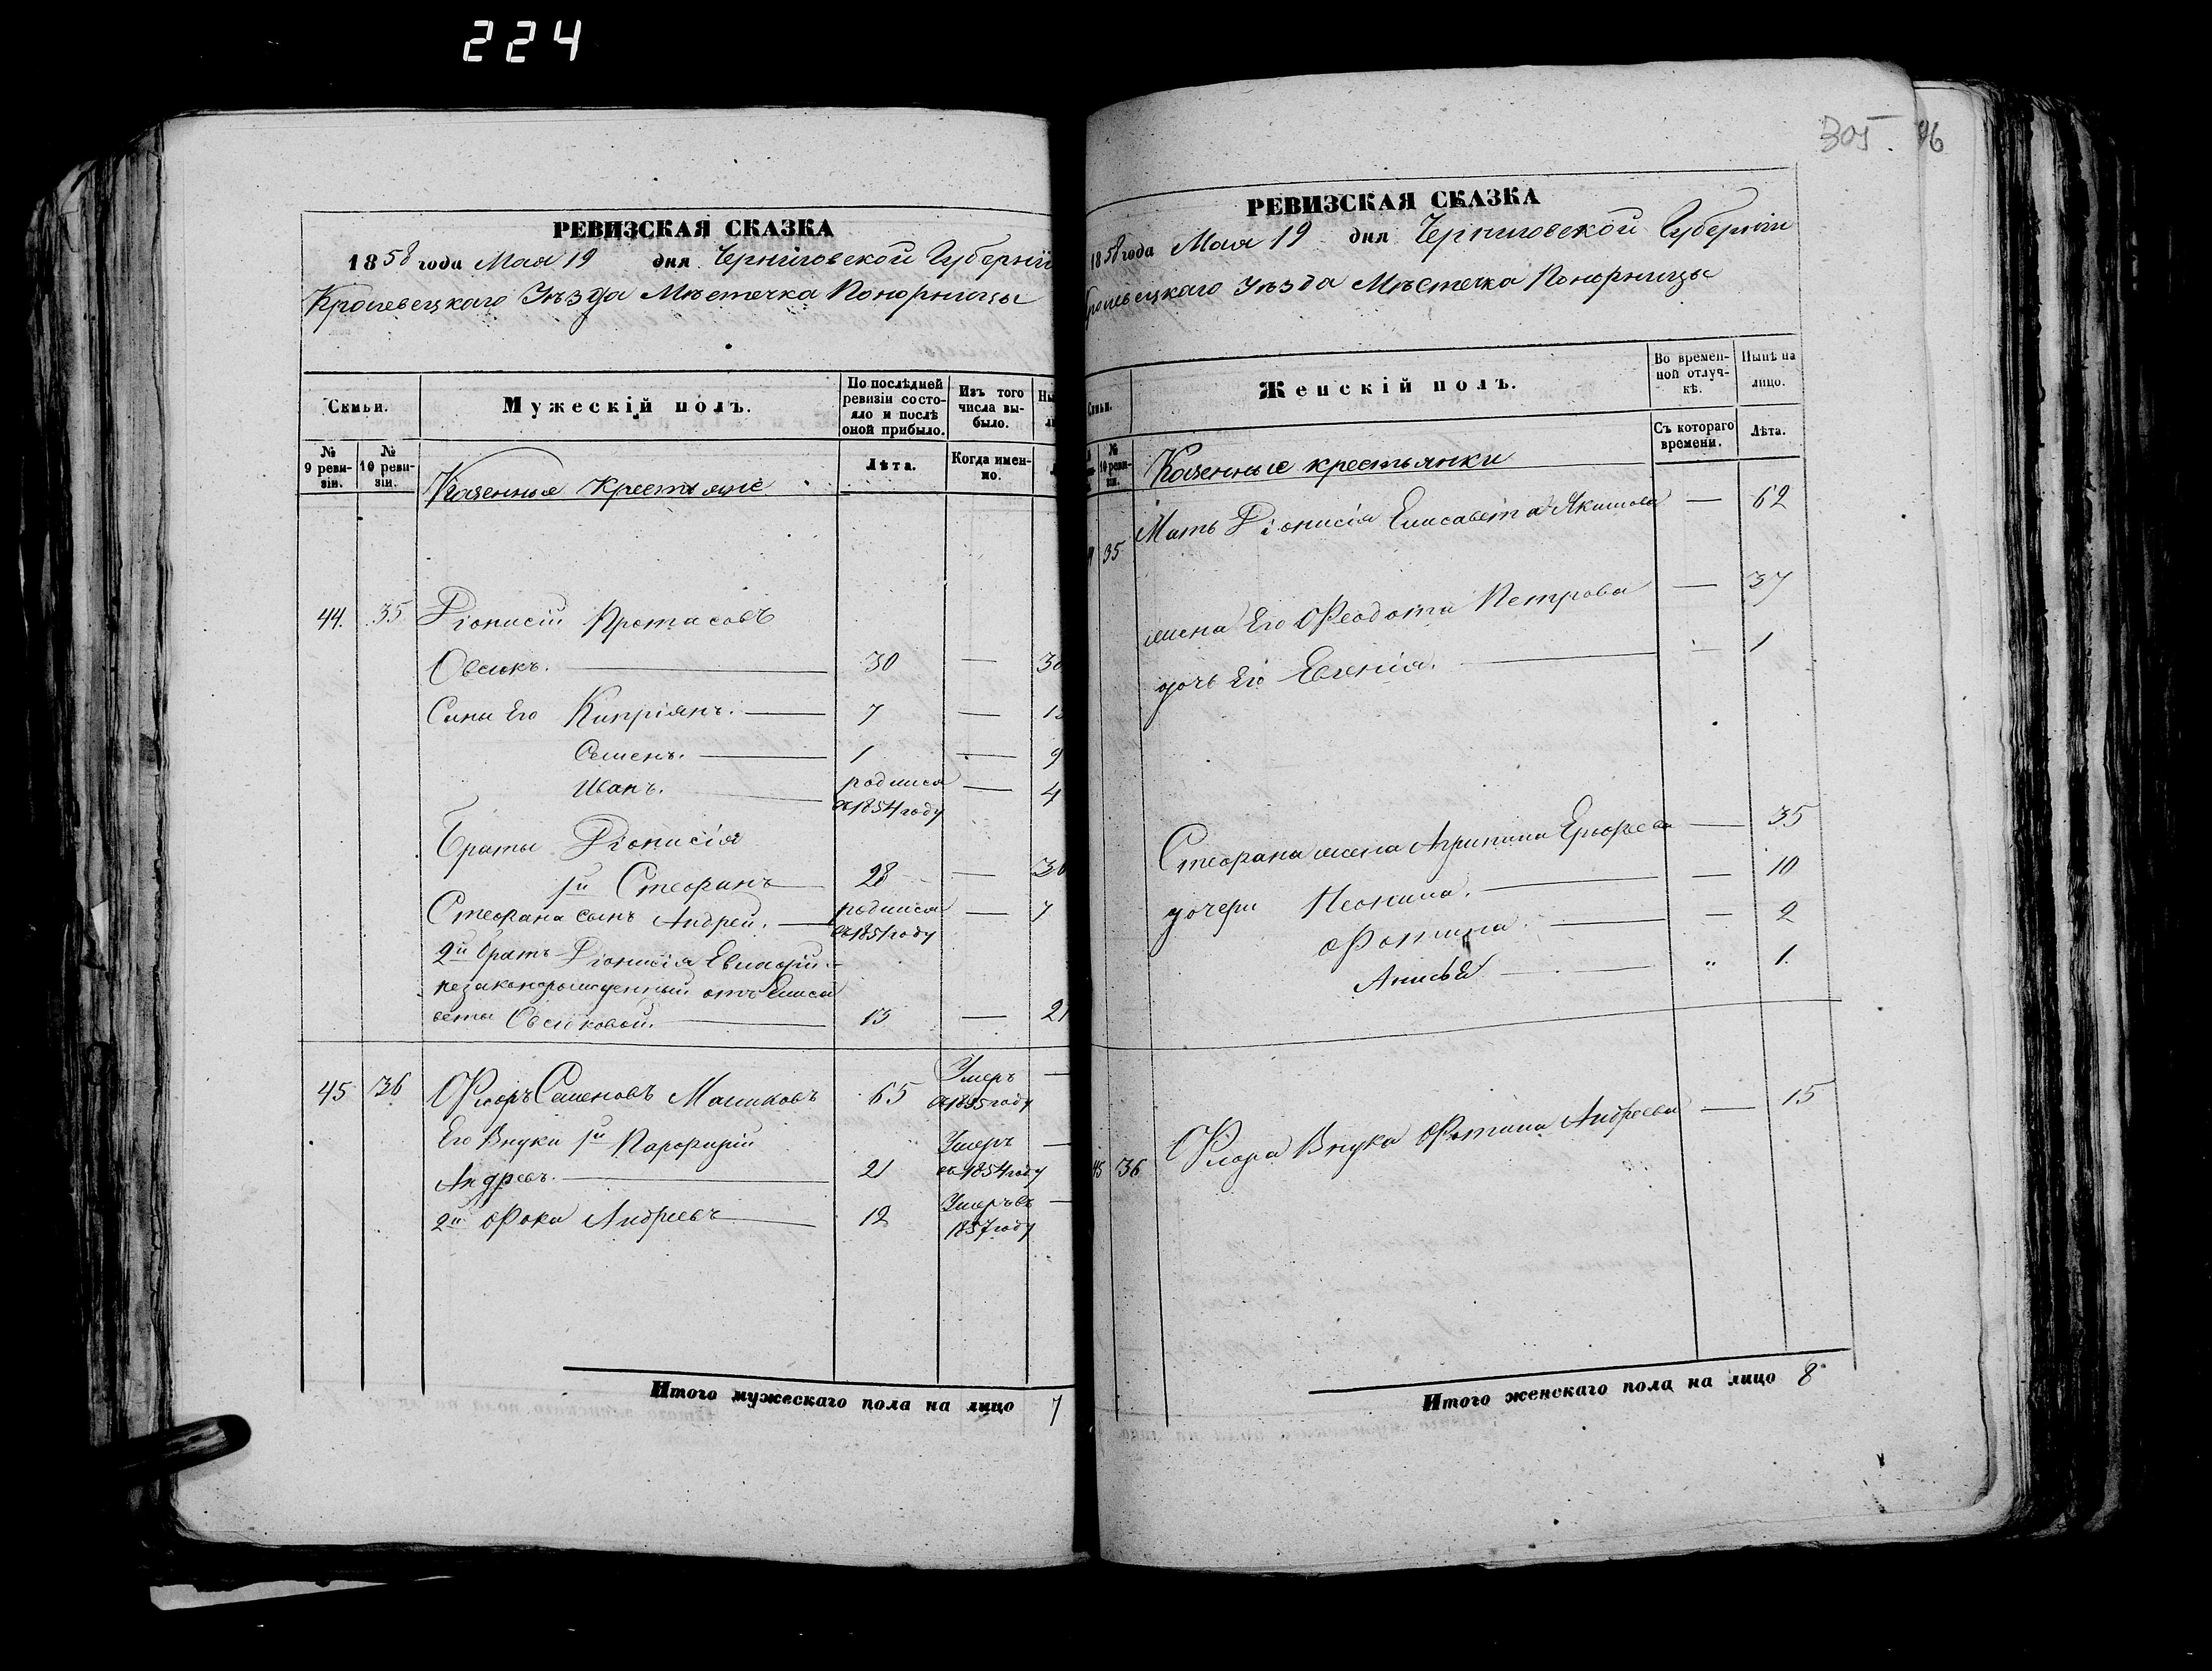 224
РЕВИЗСКАЯ СКАЗКА
1858 года Мая 19 дня Черниговской Губерніи
Кролевецкаго Уѣзда Мѣстечка Понорницы
Семьи.
Мужескій полъ.
По послѣдней ревизіи состояло и послѣ оной прибыло.
Изъ того числа выбыло.
№ 9 ревизіи.
№ 10 ревизіи.
Лѣта.
Когда именно.
Казенные крестьяне
44. 35 Діонисій Протасовъ
Овсюкъ. 30 — 38
Сины Его Кипріянъ. 7 — 15
Семенъ. 1 — 9
Иванъ. родился въ 1854 году — 4
Браты Діонисія
1й Стефанъ 28 — 36
Стефана сынъ Андрей. родился въ 1851 году — 7
2й братъ Діонисія Евлафій
незаконорожденный отъ Елиса
веты Овсюковой. 13 — 21
45 36 Флоръ Семеновъ Маликовъ 65 Умеръ въ 1855 году —
Его Внуки 1й Парфирій Умеръ —
Андреевъ. 21 въ 1854 году
2й Фока Андреевъ 12 Умеръ въ 1857 году —
Итого мужескаго пола на лицо 7
305. 96
РЕВИЗСКАЯ СКАЗКА
1858 года Мая 19 дня Черниговской Губерніи
Кролевецкаго Уѣзда Мѣстечка Понорницы
Семьи.
Женскій полъ.
Во временной отлучкѣ.
Нынѣ на лицо.
№ 10 ревизіи.
Съ котораго времени.
Лѣта.
Казенные крестьянки
35 Мать Діонисія Елисавета Якимова — 62
жена Его Феодота Петрова — 37
дочь Его Евгенія. — 1
Стефана жена Агрипина Ерофеева — 35
дочери Неонила. — 10
Фотина. — 2
Анисья — " 1.
45 36 Флора Внука Фотина Андреева — 15
Итого женскаго пола на лицо 8